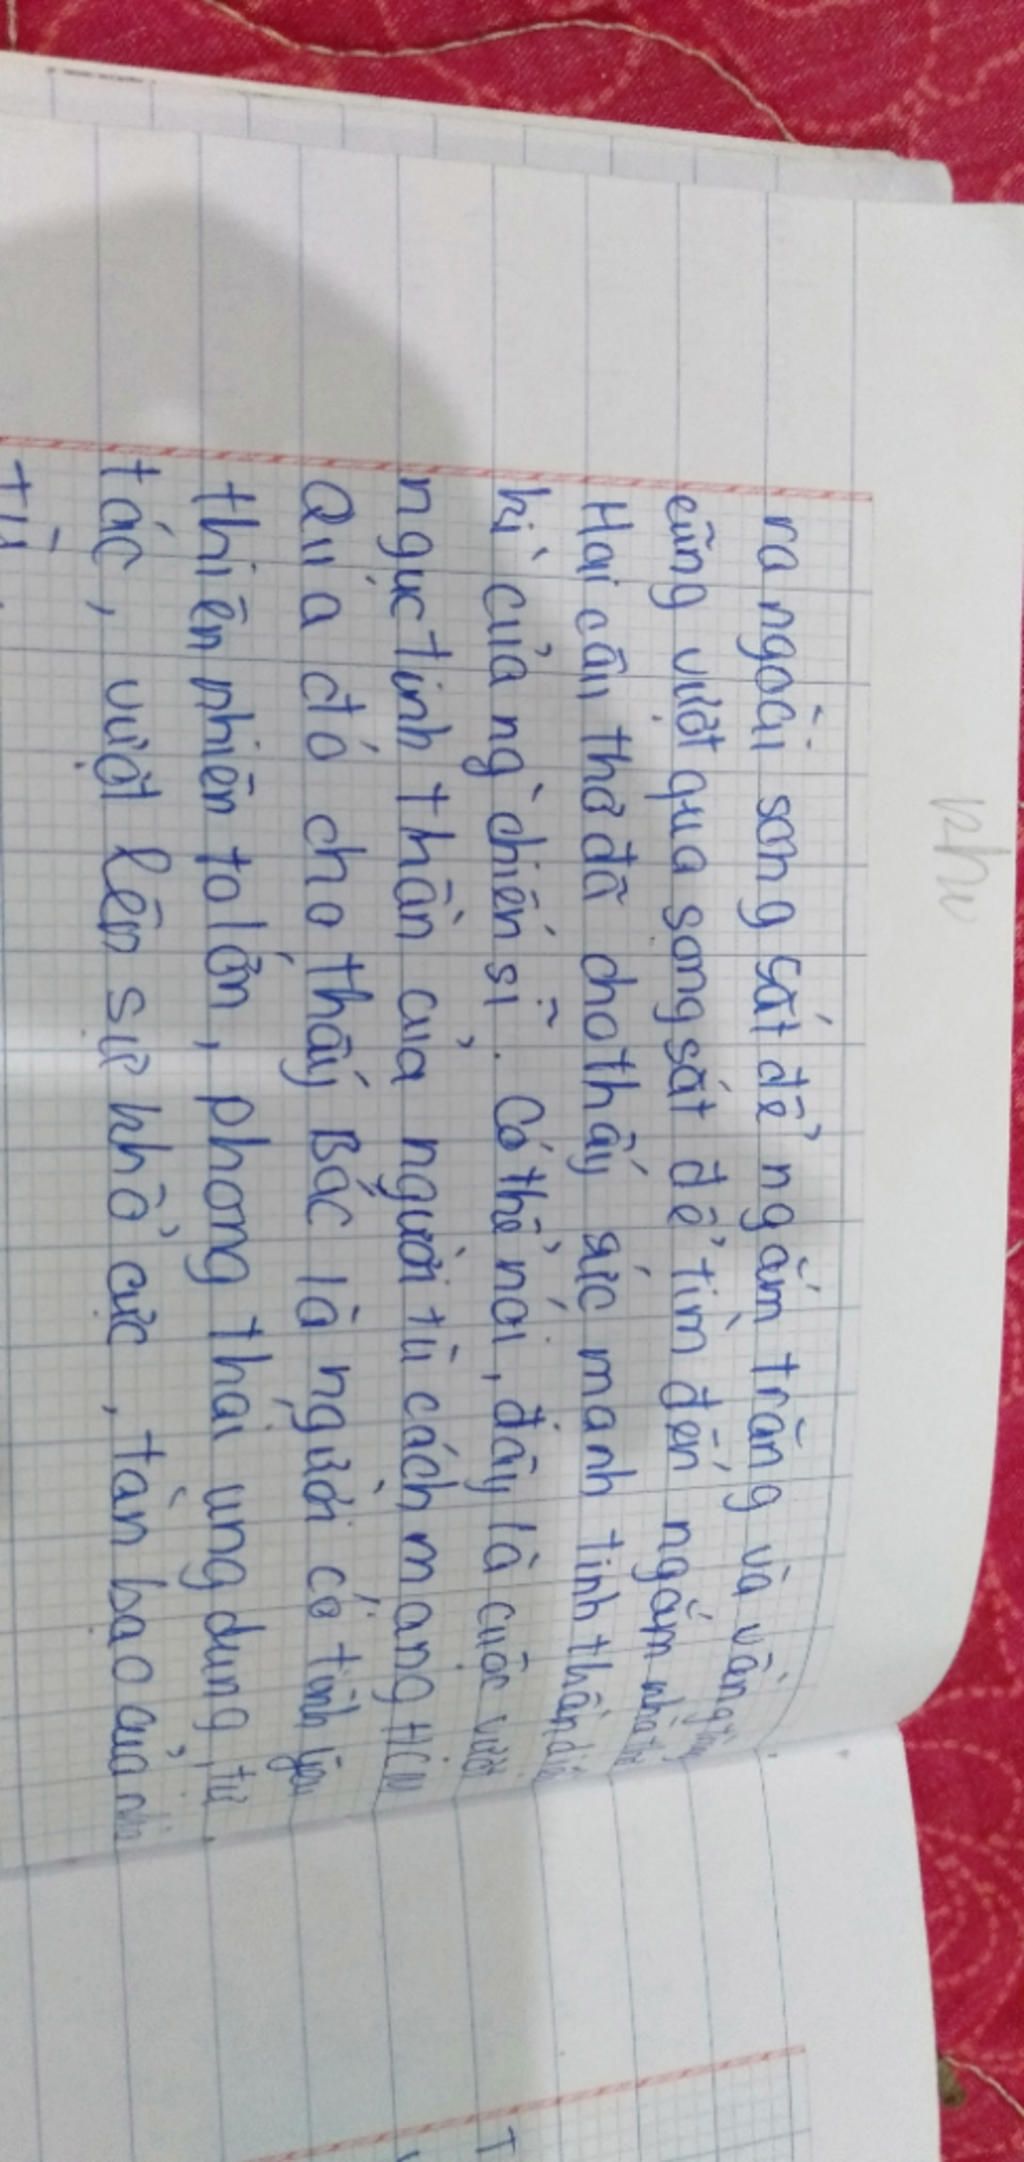 khu
ra ngoài song sắt để ngắm trăng và vầng trăng
cũng vượt qua song sắt để tìm đến ngắm nhà thơ
Hai câu thơ đã cho thấy sức mạnh tinh thần diệu
kì của ng` chiến sĩ. Có thể nói, đây là cuộc vượt
ngục tinh thần của người tù cách mạng HCM
Qua đó cho thấy Bác là người có tình yêu
thiên nhiên to lớn, phong thái ung dung, tự
tác, vượt lên sự khổ cực, tàn bạo của nhà
tù
T